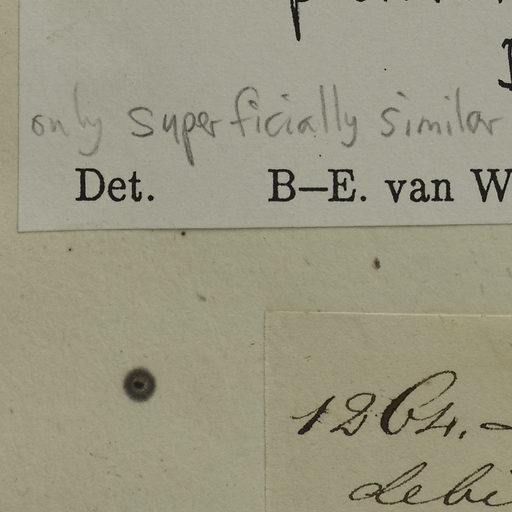 only superficially similar
Det. B–E. van W
1264.–
debi